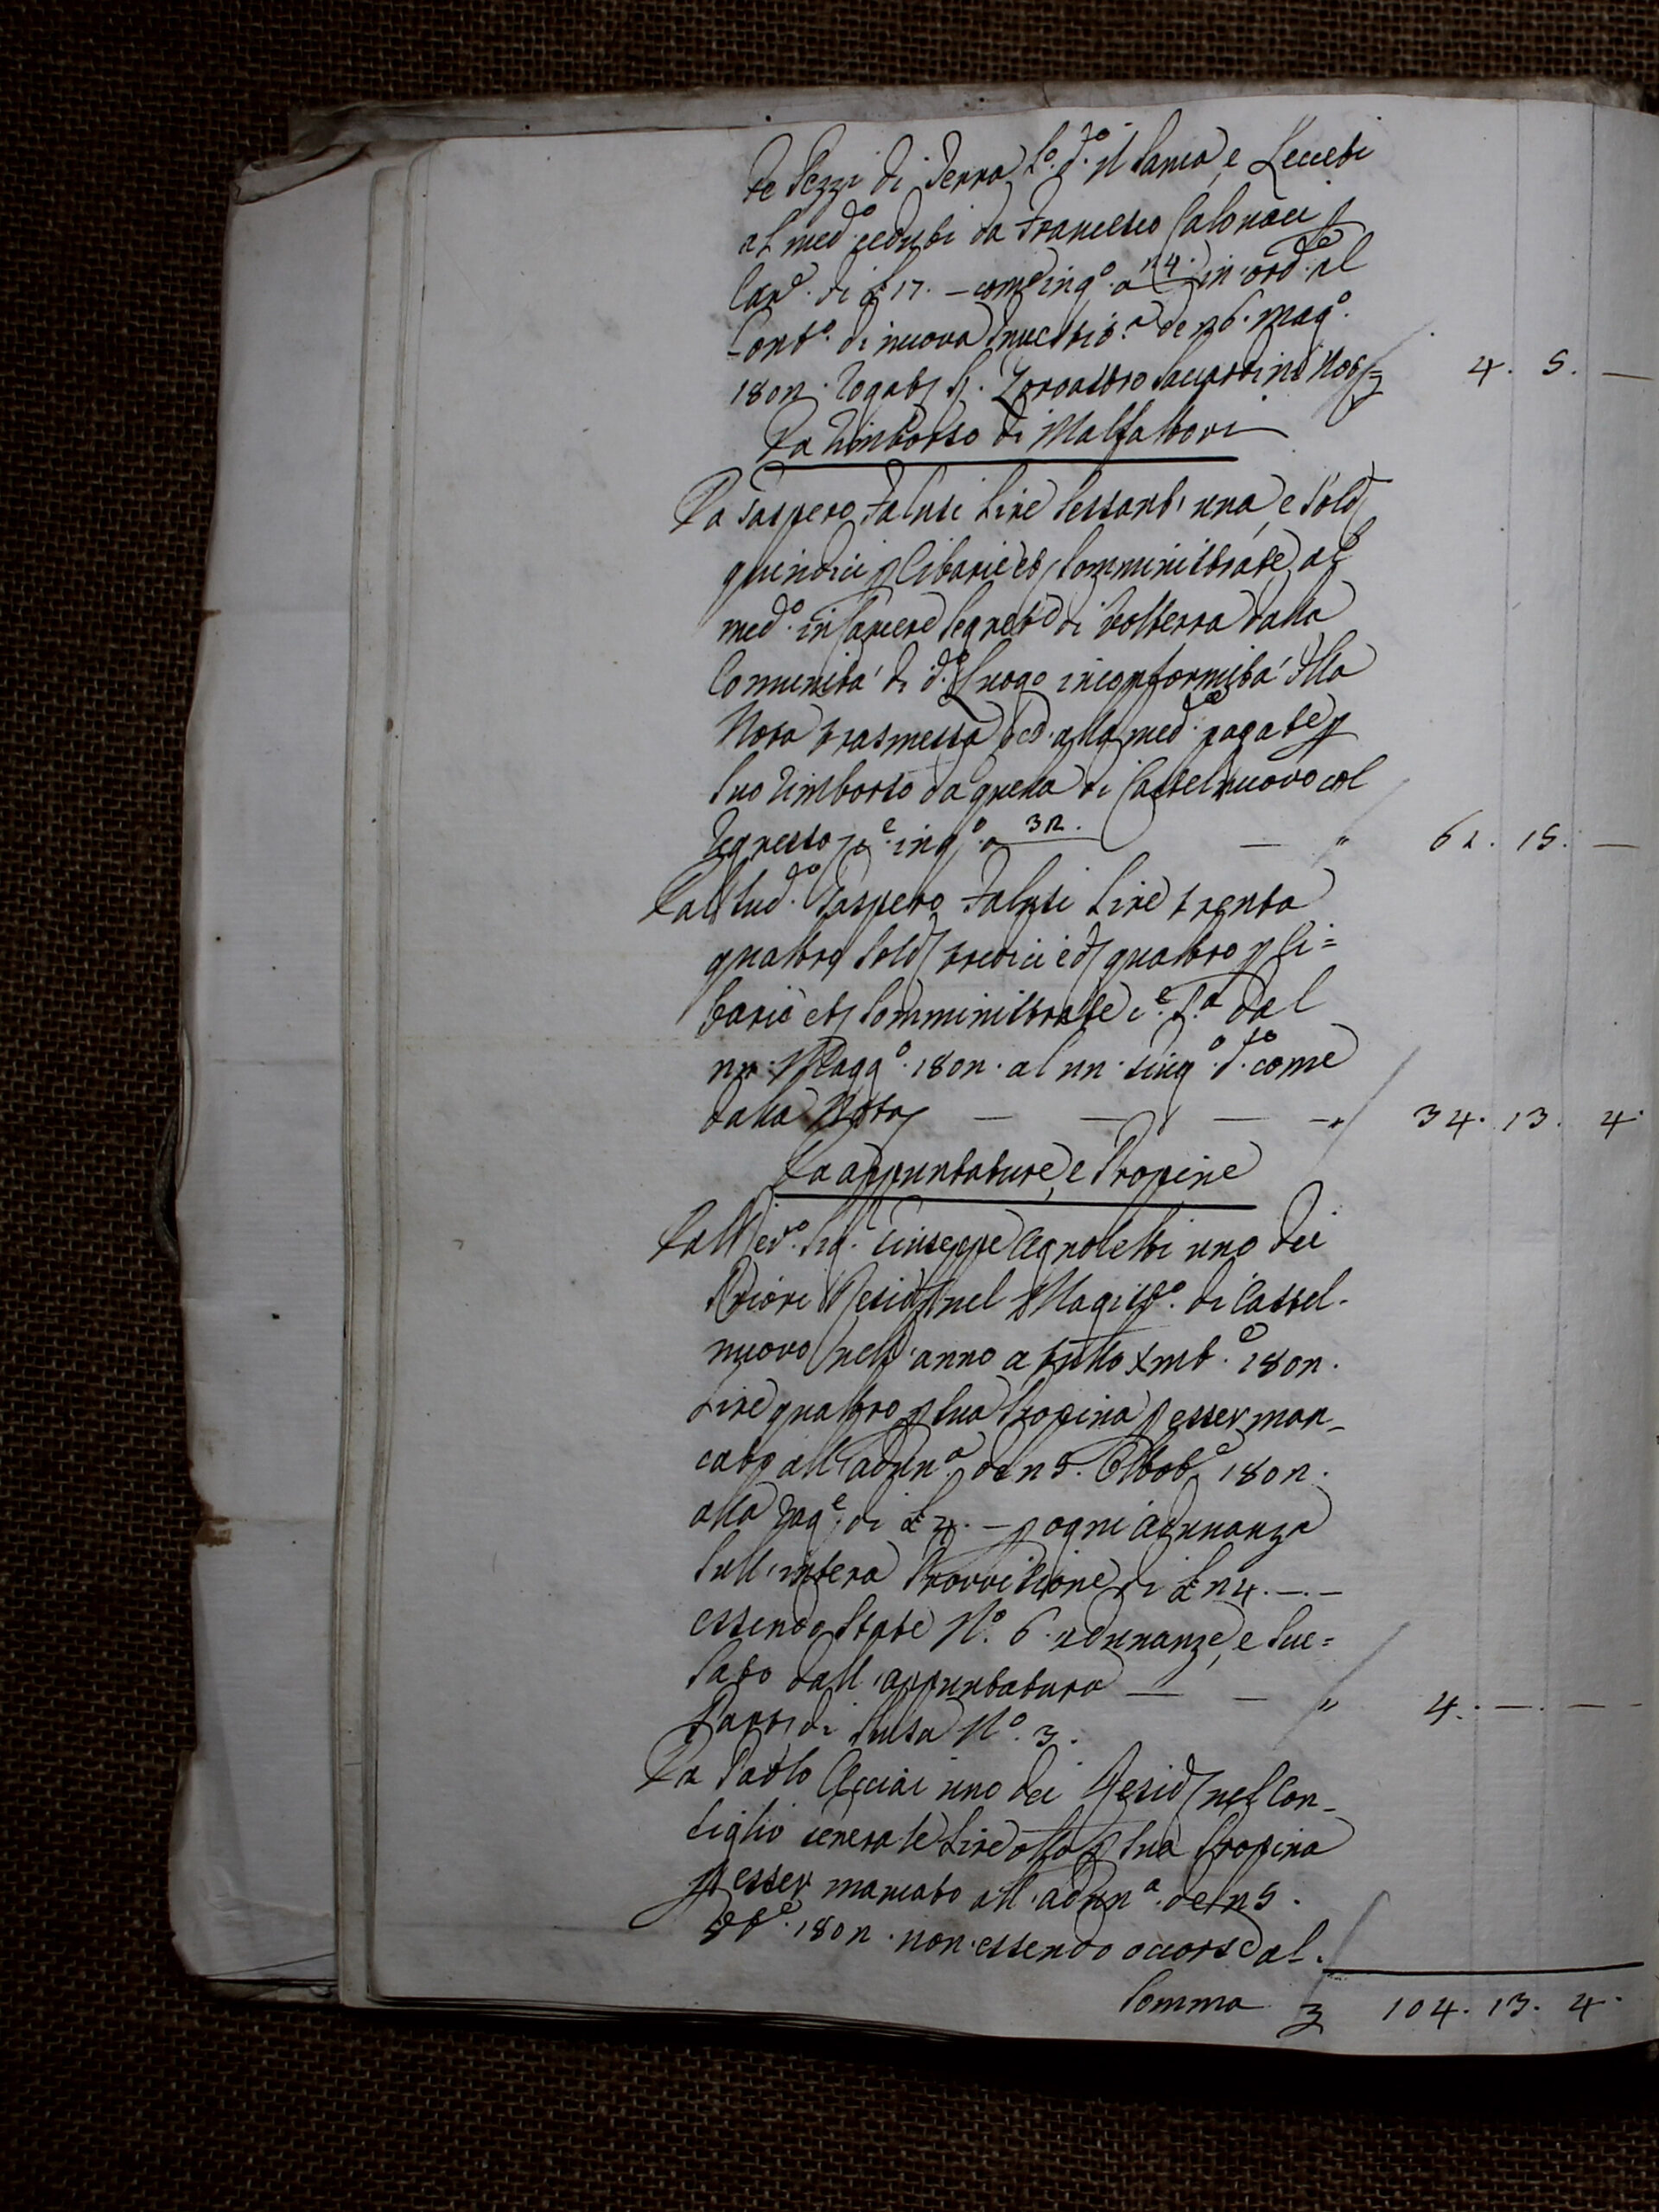 te Pezzi di Terra L.o d.to il Sarca, e Leccebi
al med.o ceduti da Francesco Calonaci p
Can.e di £ 17. – come in q.o a 24. in ord.e al
Cont.o di nuova Investit.a de 26. Mag.o
1802. Rogat S. Zoroastro Not = 4. 5. —
Da Rimborso di Malfattori
Da Gaspero Falusi Lire Sessant'una, e Sold
quindici p Cibarie et Somministrate al
med.o in Carcere Segreto di Volterra dalla
Comunità di d.o Luogo in conformità dlla
Nota trasmessa ed alla med.e pagate p
Suo Rimborso da quella di Castelnuovo col
Regresso in q.o a 32. — " 61. 15. —
Dal Sud.o Gaspero Falusi Lire trenta
quattro Sold tredici e d quattro p Ci=
barie et Somministrate c.e S.a dal
Magg.o 1802. al 22. Giug.o d.to come
dalla Nota — — — " 34. 13. 4.
Da appuntature, e Propine
Dall Sig. Giuseppe Agnoletti uno dei
Priori Resid nel Magist.o di Castel-
nuovo nell'anno a tutto Xmb.e 1802.
Lire quattro p sua Propina p esser man-
cato all'adun.a de 25. Ottob.e 1802.
alla Rag.e di £ 4. – p ogni adunanza
sull'intera Provvisione di £ 24. –. –
essendo State N.o 6. adunanze, e Sue=
tato dall'appuntatura — — " 4. —. —
Partidi Susa N.o 3.
Da Paolo Acciai uno dei Resid nel Con-
siglio Generale Lire otto p sua Propina
p esser mancato all'adun.a de 25.
8b.e 1802. non essendo occorse al.
Somma £ 104. 13. 4.